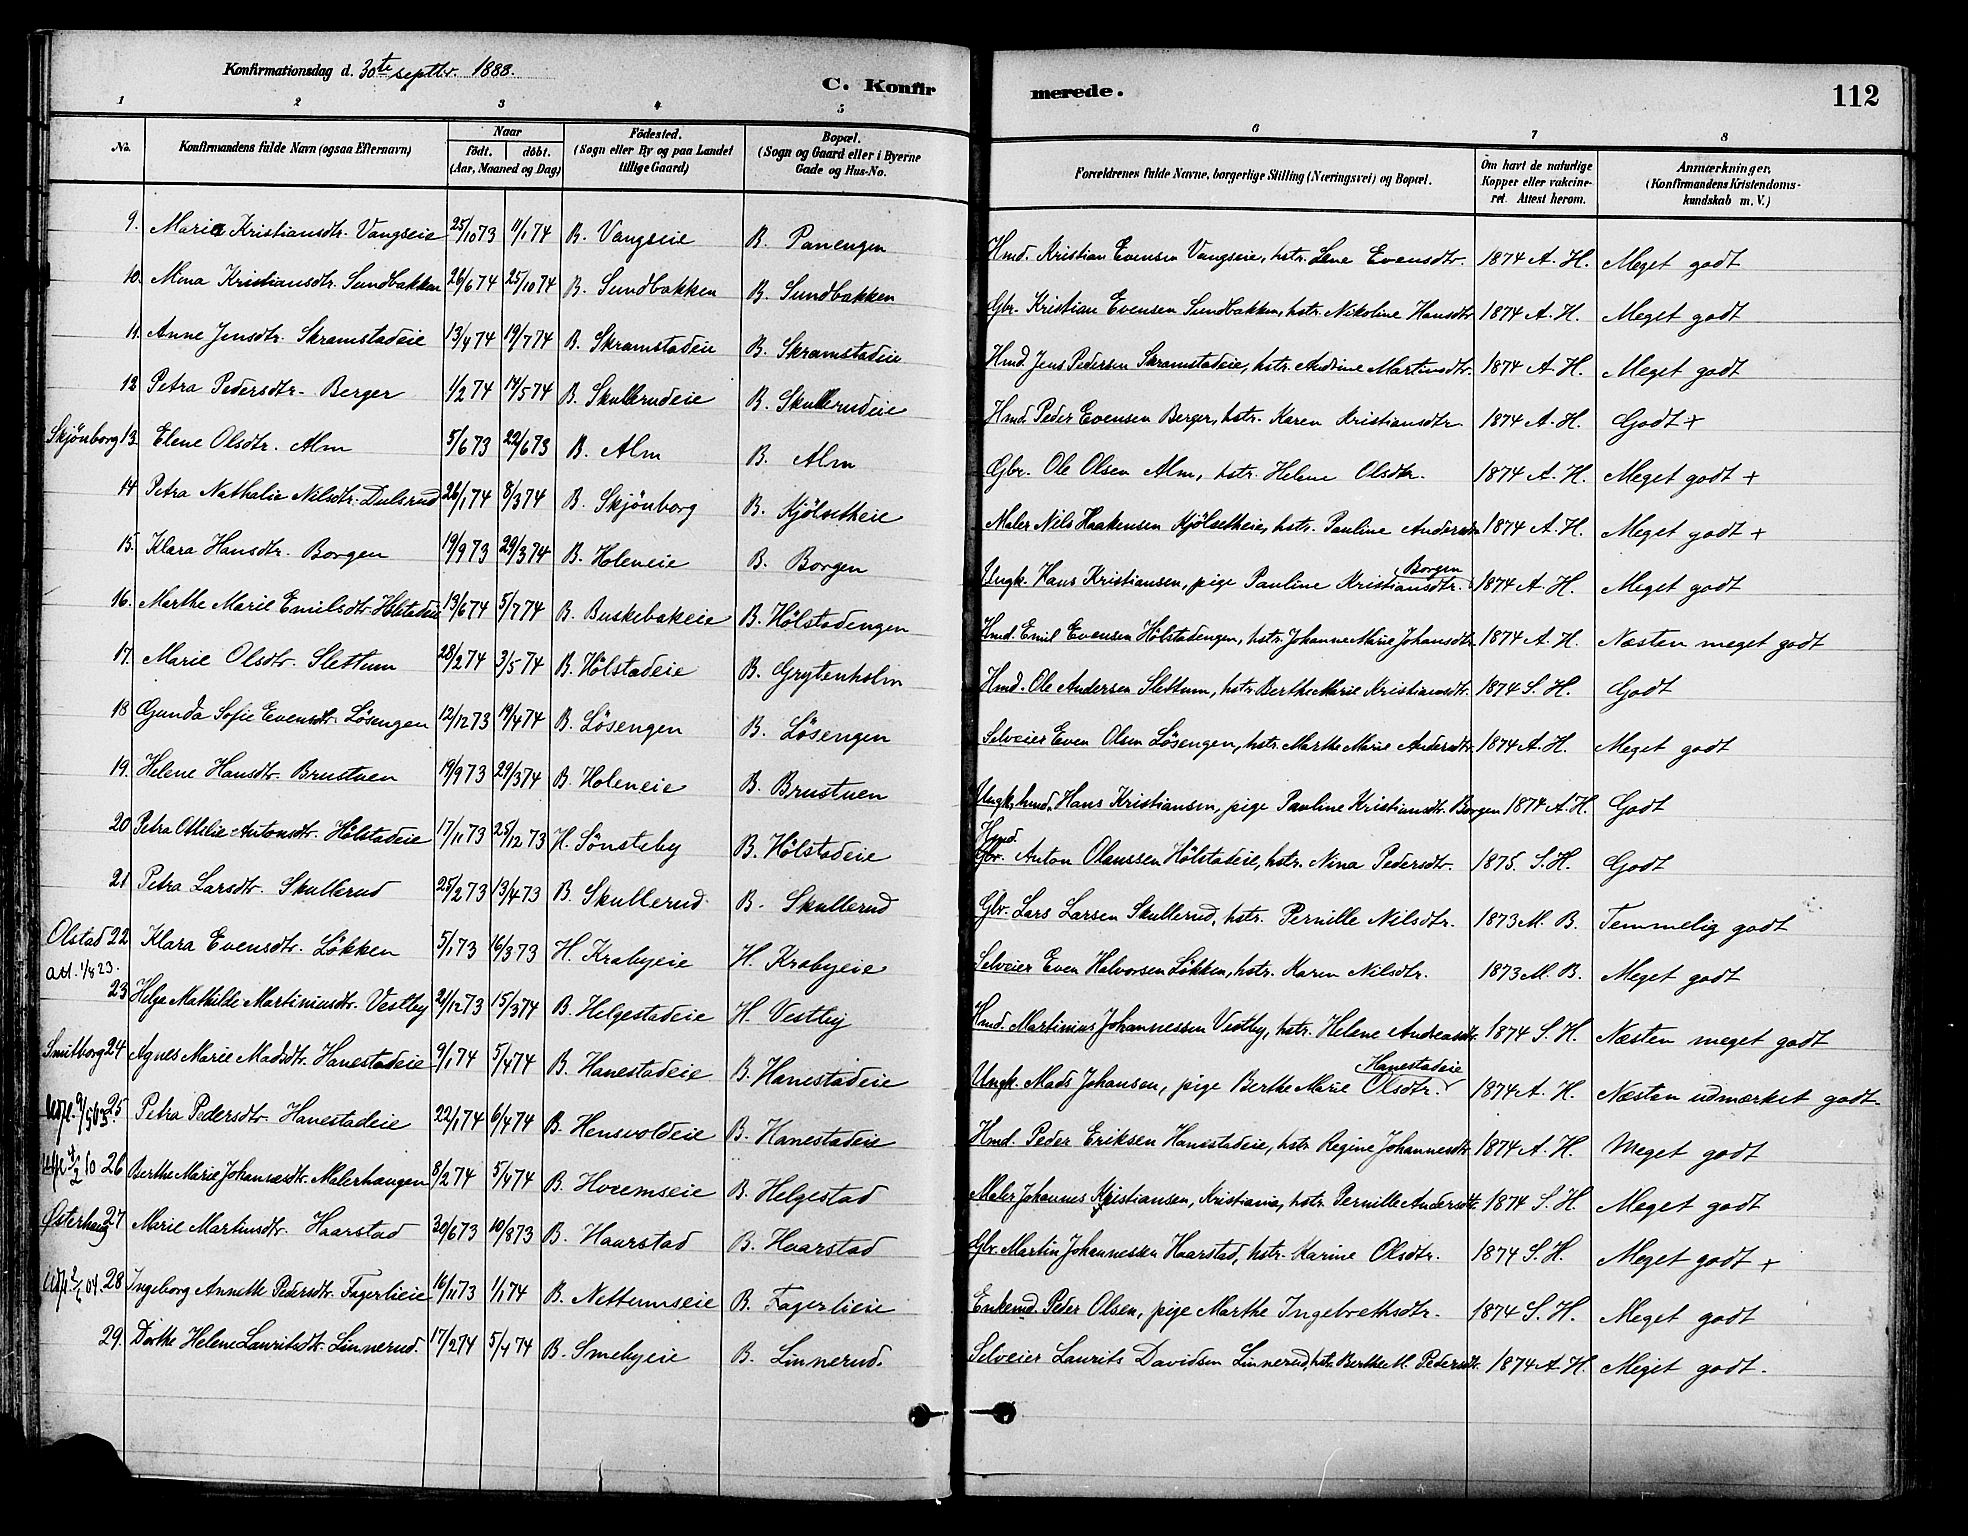 Konfirmationsdag d. 30te septbr. 1888.
C. Konfirmerede.
112
1 2 3 4 5 6 7 8
No.
Konfirmandens fulde Navn (ogsaa Efternavn)
Naar
födt. döbt.
(Aar, Maaned og Dag)
Födested.
(Sogn eller By og paa Landet
tillige Gaard)
Bopæl.
(Sogn og Gaard eller i Byerne
Gade og Hus-No.
Forældrenes fulde Navne, borgerlige Stilling (Næringsvei) og Bopæl.
Om havt de naturlige
Kopper eller vakcine-
ret. Attest herom.
Anmærkninger.
(Konfirmandens Kristendoms-
kundskab m. V.)
9. Marie Kristiansdtr. Vangseie 25/10 73 11/1 74 B. Vangseie B. Panengen Hmd. Kristian Evensen Vangseie, hstr. Lene Evensdtr. 1874 A. H. Meget godt
10. Mina Kristiansdtr. Sundbakken 26/6 74 25/10 74 B. Sundbakken B. Sundbakken Gbr. Kristian Evensen Sundbakken, hstr. Nikoline Hansdtr 1874 A. H. Meget godt
11. Anne Jensdtr. Skramstadeie 13/4 74 19/7 74 B. Skramstadeie B. Skramstadeie Hmd. Jens Pedersen Skramstadeie, hstr. Andrine Martinsdtr. 1874 A. H. Meget godt
12 Petra Pedersdtr. Berger 1/2 74 14/5 74 B. Skullerudeie B. Skullerudeie Hmd. Peder Evensen Berger, hstr. Karen Kristiansdtr. 1874 A. H. Godt +
Skjønborg 13. Elene Olsdtr. Alm 5/6 73 22/6 73 B. Alm B. Alm Gbr. Ole Olsen Alm, hstr. Helene Olsdtr. 1874 A. H. Meget godt +
14 Petra Nathalie Nilsdtr. Dulsrud 26/1 74 8/3 74 B. Skjönborg B. Kjölsetheie Maler Nils Haakensen Kjölsetheie, hstr. Pauline Andersdtr 1874 A. H. Meget godt +
15. Klara Hansdtr. Borgen 19/9 73 29/3 74 B. Holeneie B. Borgen Ungk. Hans Kristiansen, pige Pauline Kristiansdtr. Borgen 1874 A. H. Meget godt
16. Marthe Marie Emilsdtr. Hölstadeie 13/6 74 5/7 74 B. Buskebakeie B. Hölstadengen Hmd. Emil Evensen Hölstadengen, hstr. Johanne Marie Johansdtr. 1874 A. H. Næsten meget godt
17. Marie Olsdtr. Slettum 28/2 74 3/5 74 B. Hölstadeie B. Grytenholm Hmd. Ole Andersen Slettum, hstr. Berthe Marie Kristiansdtr. 1874 S. H. Godt
18 Gunda Sofie Evensdtr. Lösengen 12/12 73 19/4 74 B. Lösengen B. Lösengen Selveier Even Olsen Lösengen, hstr. Marthe Marie Andersdtr. 1874 A. H. Meget godt
19. Helene Hansdtr. Brustuen 19/9 73 29/3 74 B. Holeneie B. Brustuen Ungk. hmd. Hans Kristiansen, pige Pauline Kristiansdtr. Borgen 1874 A. H. Godt
20 Petra Otilie Antonsdtr. Hölstadeie 17/11 73 25/12 73 H. Sönsteby B. Hölstadeie Hmd. Gbr. Anton Olaussen Hölstadeie, hstr. Nina Pedersdtr. 1875. S. H. Godt
21 Petra Larsdtr. Skullerud 25/2 73 13/4 73 B. Skullerud B. Skullerud Gbr. Lars Larsen Skullerud, hstr. Pernille Nilsdtr. 1873 M. B. Temmelig godt
Olstad 22 Klara Evensdtr. Lökken 5/1 73 16/3 73 H. Krabyeie H. Krabyeie Selveier Even Halvorsen Lökken, hstr. Karen Nilsdtr. 1873 M. B. Meget godt
att. 1/8 23.
23 Helga Mathilde Martiniusdtr. Vestby 21/12 73 15/3 74 B. Helgestadeie H. Vestby Hmd. Martinius Johannessen Vestby, hstr. Helene Andreasdtr. 1874 S. H. Næsten meget godt
Smitborg 24 Agnes Marie Madsdtr. Hanestadeie 9/1 74 5/4 74 B. Hanestadeie B. Hanestadeie Ungk. Mads Johansen, pige Berthe Marie Olsdtr. Hanestadeie 1874 A. H. Næsten udmærket godt
25 Petra Pedersdtr. Hanestadeie 22/1 74 6/4 74 B. Hensvoldeie B. Hanestadeie Hmd. Peder Eriksen Hanestadeie, hstr. Regine Johannesdtr. 1874 A. H. Meget godt
26 Berthe Marie Johansesdtr. Malerhaugen 8/2 74 5/4 74 B. Horemseie B. Helgestad Maler Johannes Kristiansen, Kristiania, hstr. Pernille Andersdtr. 1874 S. H. Meget godt
Østerhaug 27 Marie Martinsdtr. Haarstad 30/6 73 10/8 73 B. Haarstad B. Haarstad Gbr. Martin Johannessen Haarstad, hstr. Karine Olsdtr. 1874 S. H. Meget godt +
28 Ingeborg Annette Pedersdtr. Fagerlieie 16/11 73 1/1 74 B. Nettumseie B. Fagerlieie Enkemd. Peder Olsen, pige Marthe Ingebrethsdtr. 1874 S. H. Meget godt
29. Dorthe Helene Lauritsdtr. Linnerud. 17/2 74 5/4 74 B. Smebyeie B. Linnerud. Selveier Laurits Davidsen Linnerud, hstr. Berthe M. Pedersdtr. 1874 A. H. Meget godt.